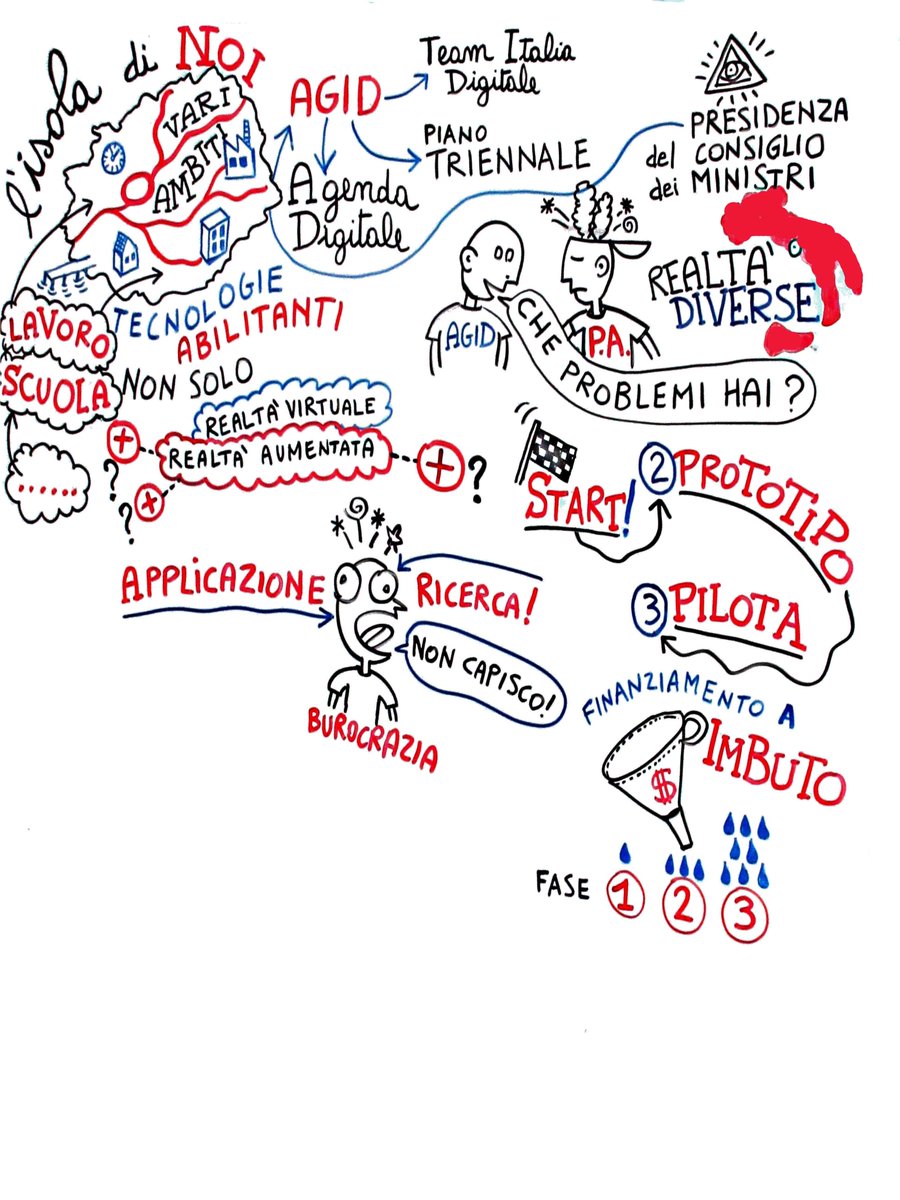 l'isola di NOI
VARI
AMBITI
AGID
Team Italia
Digitale
PIANO
TRIENNALE
Agenda
Digitale
PRESIDENZA
del CONSIGLIO
dei MINISTRI
AGID
P.A.
CHE PROBLEMI HAI?
REALTA'
DIVERSE
TECNOLOGIE
ABILITANTI
LAVORO
SCUOLA
.......
NON SOLO
REALTÀ VIRTUALE
REALTÀ AUMENTATA
+
+
+
?
?
?
START!
2 PROTOTIPO
3 PILOTA
APPLICAZIONE
RICERCA!
NON CAPISCO!
BUROCRAZIA
FINANZIAMENTO A
IMBUTO
$
FASE 1 2 3